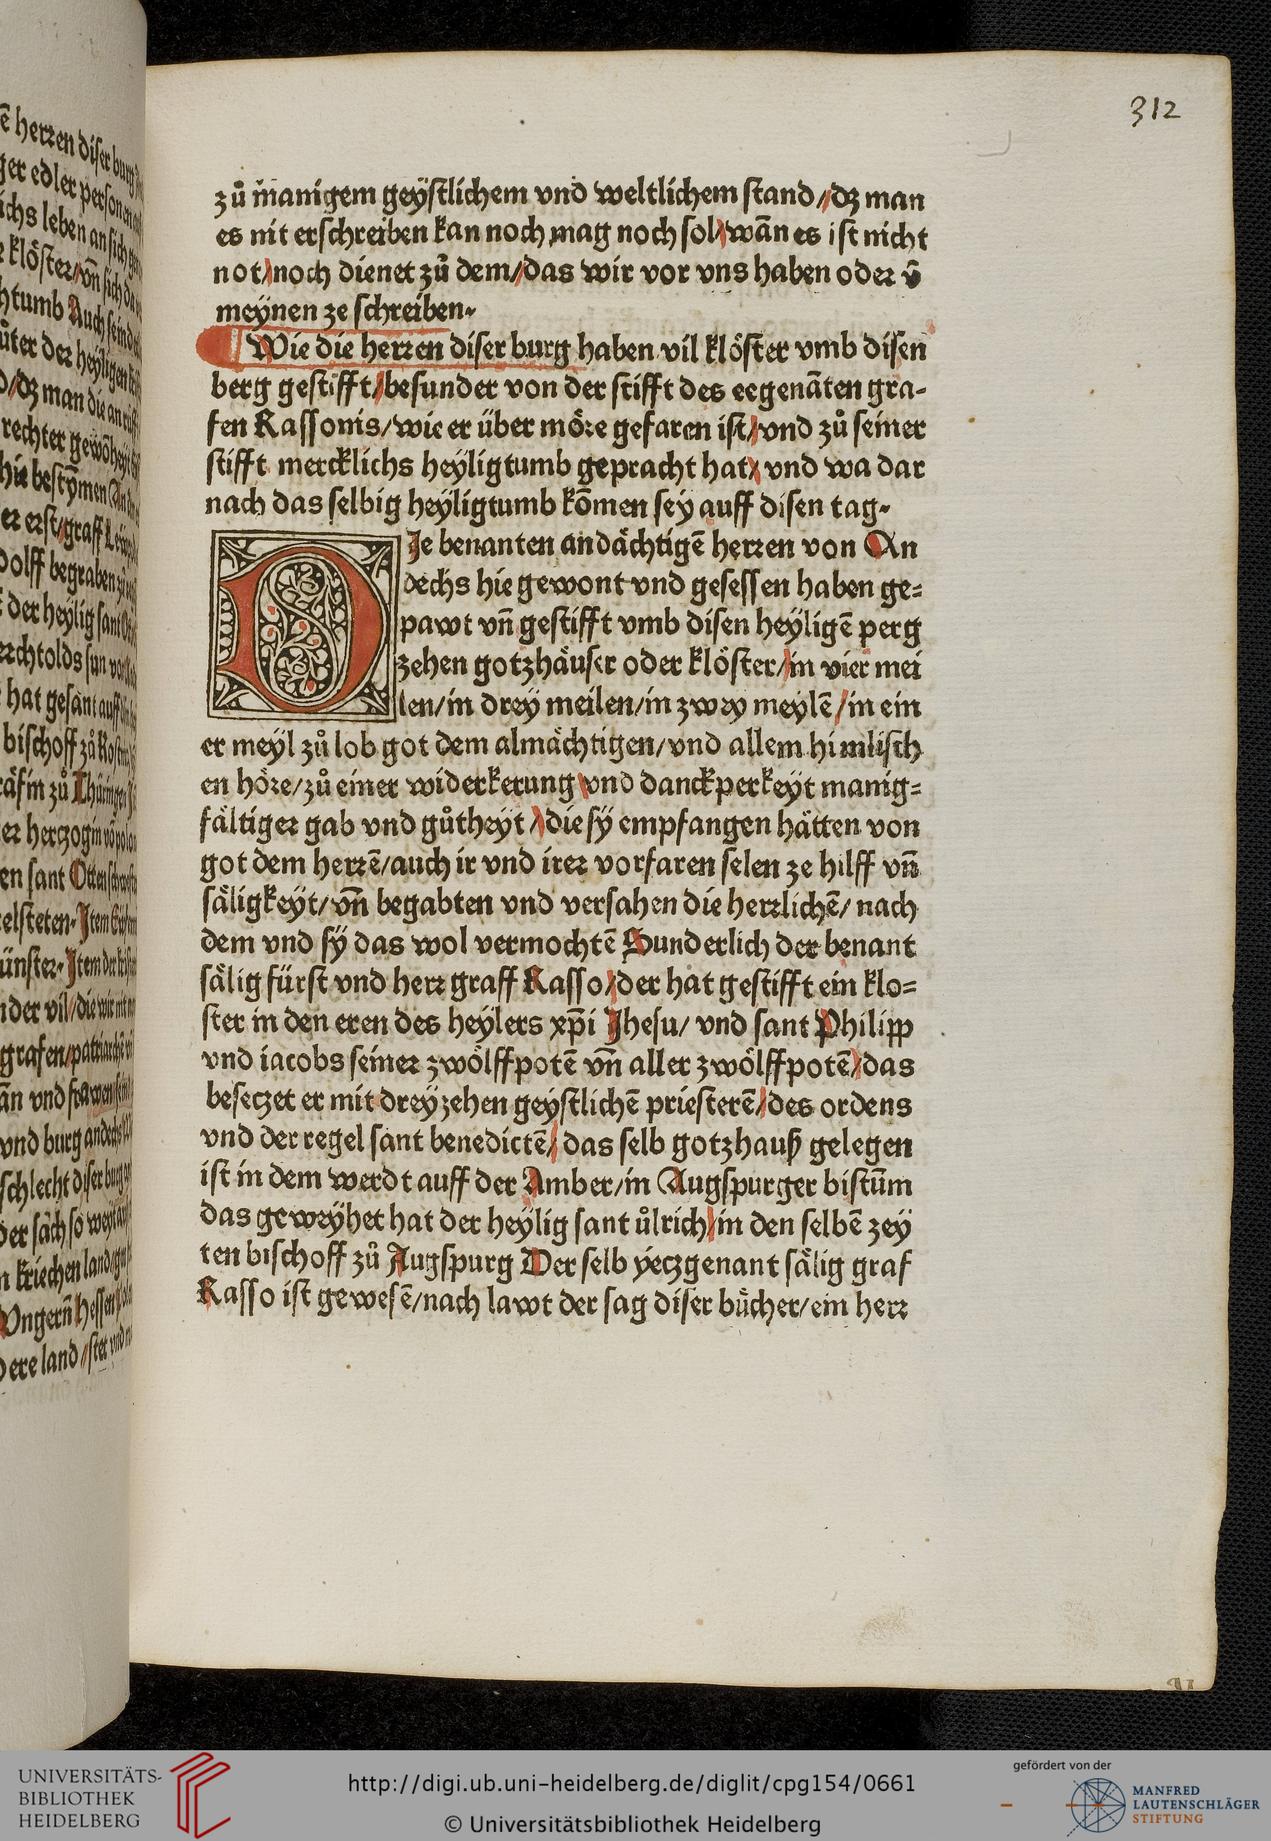 312
zů manigem geystlichem vnd weltlichem stand/dz man
es nit erschreiben kan noch mag noch sol/wañ es ist nicht
not/noch dienet zů dem/das wir vor vns haben oder v̄
meynen ze schreiben.
Wie die herren diser burg haben vil klöster vmb disen
berg gestifft/besunder von der stifft des eegenāten gra-
fen Rassonis/wie er über möre gefaren ist/vnd zů seiner
stifft mercklichs heyligtumb gepracht hat/vnd wa dar
nach das selbig heyligtumb kōmen sey auff disen tag.
DIe benanten andächtigē herren von An
dechs hie gewont vnd gesessen haben ge-
pawt vn̄ gestifft vmb disen heyligē perg
zehen gotzhäuser oder klöster/in vier mei
len/in drey meilen/in zwey meylē/in ein
er meyl zů lob got dem almächtigen/vnd allem himlisch
en höre/zů einer widerkerung vnd danckperkeyt manig-
fältiger gab vnd gůtheyt/die sy empfangen hätten von
got dem herrē/auch ir vnd irer vorfaren selen ze hilff vn̄
säligkeyt/vn̄ begabten vnd versahen die herrlichē/nach
dem vnd sy das wol vermochtē Sunderlich der benant
sälig fürst vnd herr graff Rasso/der hat gestifft ein klo-
ster in den eren des heylers xp̄i Jhesu/vnd sant Philipp
vnd iacobs seiner zwölffpotē vn̄ aller zwölffpotē/das
beseczet er mit dreyzehen geystlichē priesterē/des ordens
vnd der regel sant benedictē/das selb gotzhauß gelegen
ist in dem werdt auff der Amber/in Augspurger bistūm
das geweyhet hat der heylig sant ůlrich/in den selbē zey
ten bischoff zů Augspurg Der selb yeczgenant sälig graf
Rasso ist gewesē/nach lawt der sag diser bücher/ein herr
UNIVERSITÄTS-
BIBLIOTHEK
HEIDELBERG
http://digi.ub.uni-heidelberg.de/diglit/cpg154/0661
© Universitätsbibliothek Heidelberg
gefördert von der
MANFRED
LAUTENSCHLÄGER
STIFTUNG